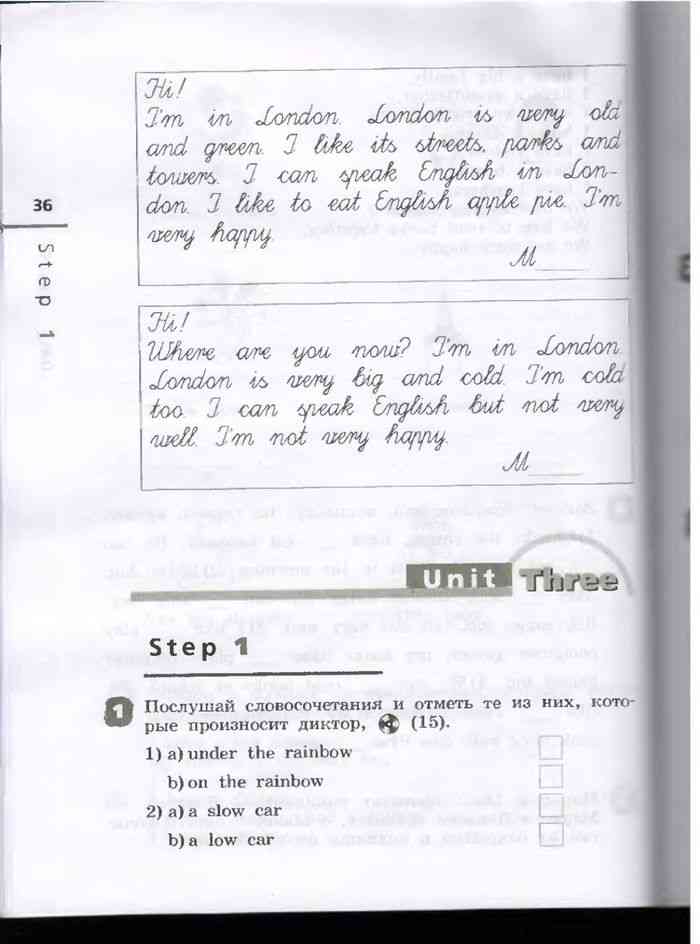 Hi!
I'm in London. London is very old
and green. I like its streets, parks and
towers. I can speak English in Lon-
don. I like to eat English apple pie. I'm
very happy.
M_____
36
Step 1
Hi!
Where are you now? I'm in London.
London is very big and cold. I'm cold
too. I can speak English but not very
well. I'm not very happy.
M_____
Unit Three
Step 1
1 Послушай словосочетания и отметь те из них, кото-
рые произносит диктор, (15).
1) a) under the rainbow
b) on the rainbow
2) a) a slow car
b) a low car